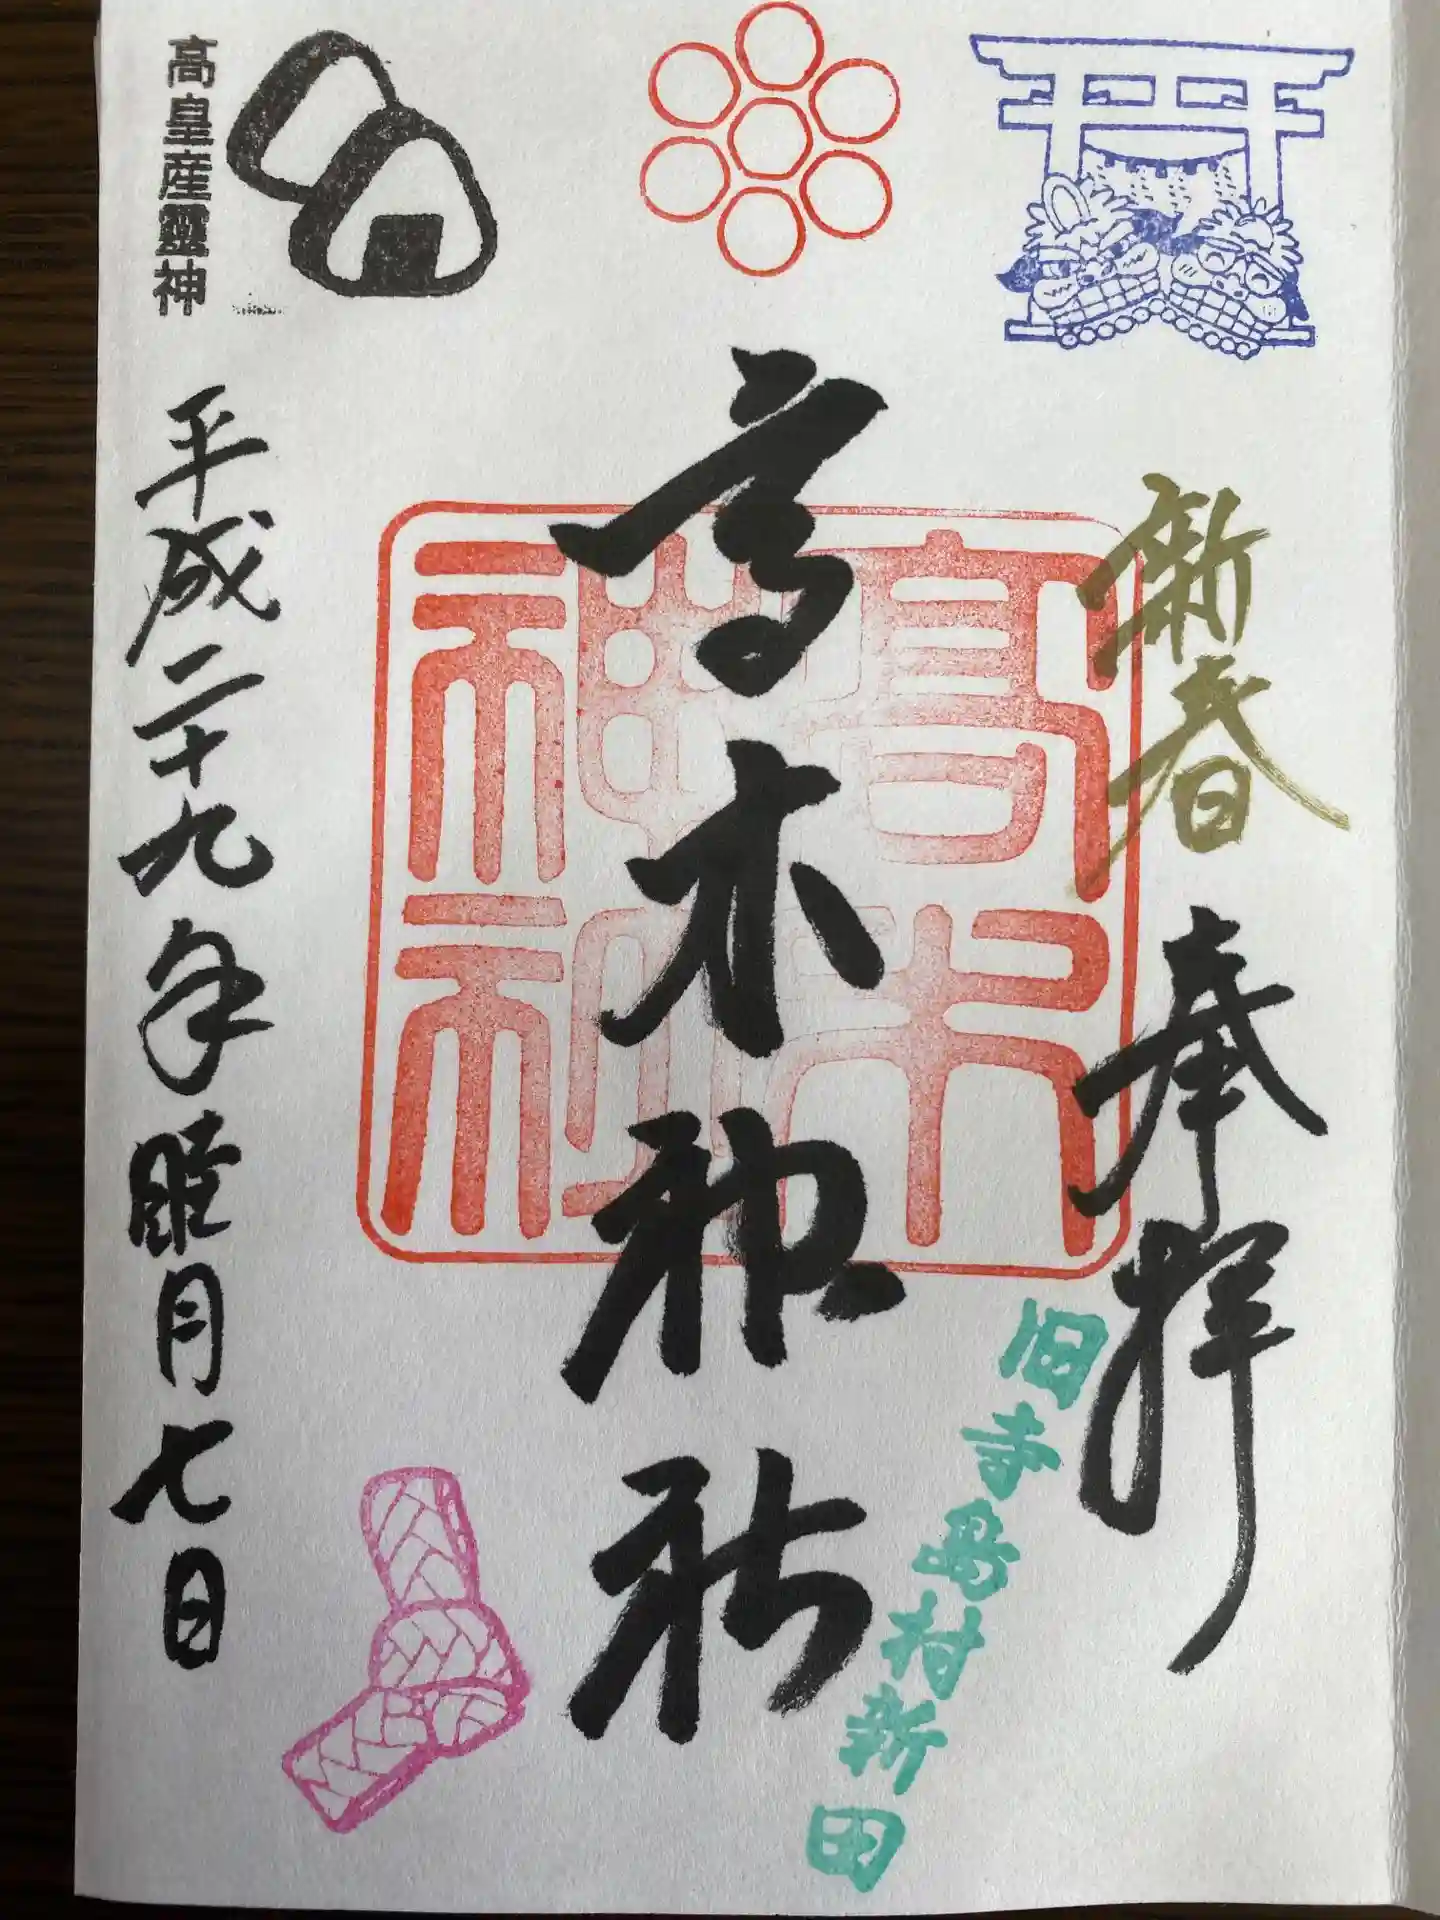 新春
奉拝
旧寺島村新田
高木神社
高木神社
平成二十九年睦月七日
高皇産靈神